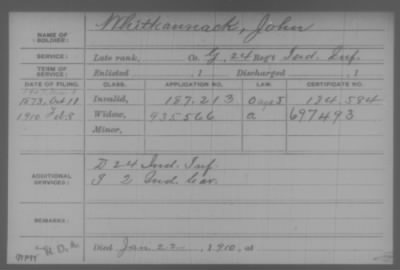 NAME OF SOLDIER: Whitkannack, John
SERVICE: Late rank, Co. G, 24 Reg't Ind. Inf.
TERM OF SERVICE: Enlisted , 1 Discharged , 1
DATE OF FILING. CLASS. APPLICATION NO. LAW. CERTIFICATE NO.
1873, Oct 11 Invalid, 187.213 124.584
1910 Feb 8 Widow, 935566 a 697493
Minor,
ADDITIONAL SERVICES: D 24 Ind. Inf.
I 2 Ind. Cav.
REMARKS:
Died Jan 22, 1910, at